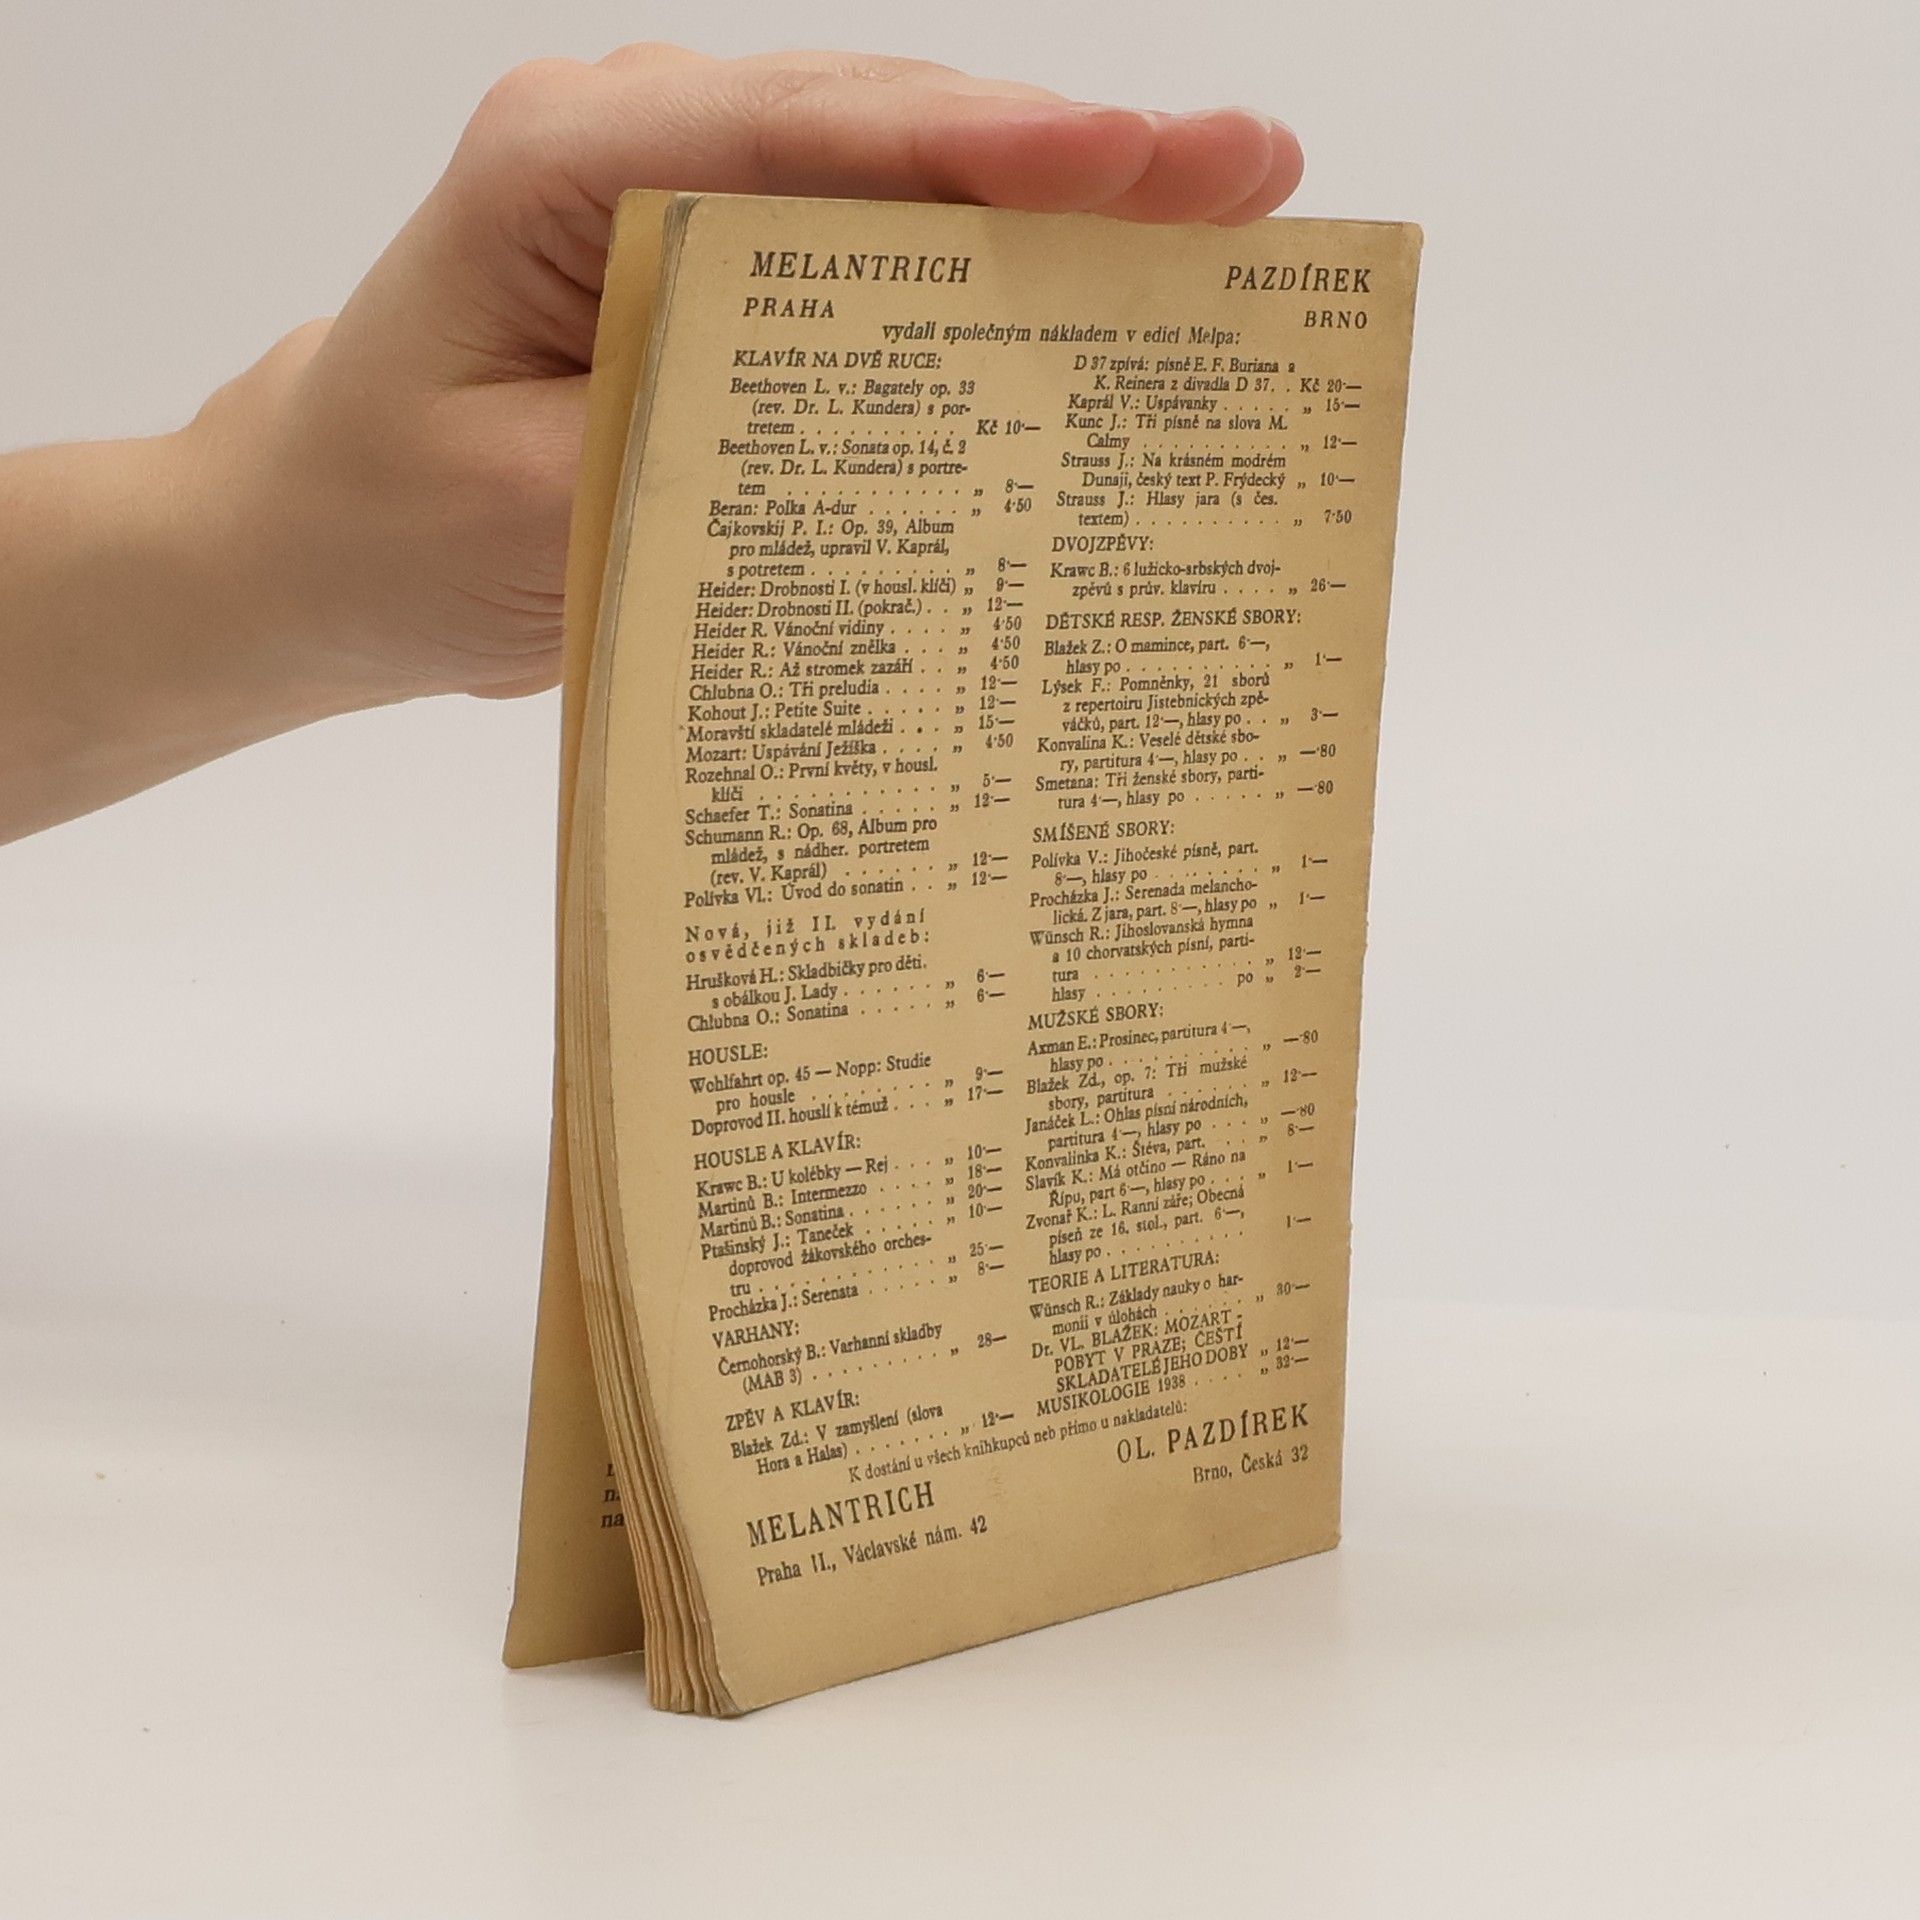 MELANTRICH
PRAHA
PAZDÍREK
BRNO
vydali společným nákladem v edici Melpa:
KLAVÍR NA DVĚ RUCE:
Beethoven L. v.: Bagately op. 33
(rev. Dr. L. Kundera) s por-
tretem . . . . . . . . . . Kč 10·—
Beethoven L. v.: Sonata op. 14, č. 2
(rev. Dr. L. Kundera) s portre-
tem . . . . . . . . . . . „ 8·—
Beran: Polka A-dur . . . . . . „ 4·50
Čajkovskij P. I.: Op. 39, Album
pro mládež, upravil V. Kaprál,
s potretem . . . . . . . . . „ 8·—
Heider: Drobnosti I. (v housl. klíči) „ 9·—
Heider: Drobnosti II. (pokrač.) . . „ 12·—
Heider R. Vánoční vidiny . . . . „ 4·50
Heider R.: Vánoční znělka . . . „ 4·50
Heider R.: Až stromek zazáří . . „ 4·50
Chlubna O.: Tři preludia . . . . „ 12·—
Kohout J.: Petite Suite . . . . . „ 12·—
Moravští skladatelé mládeži . . . „ 15·—
Mozart: Uspávání Ježíška . . . . „ 4·50
Rozehnal O.: První květy, v housl.
klíči . . . . . . . . . . . „ 5·—
Schaefer T.: Sonatina . . . . . „ 12·—
Schumann R.: Op. 68, Album pro
mládež, s nádher. portretem
(rev. V. Kaprál) . . . . . . „ 12·—
Polívka Vl.: Úvod do sonatin . . „ 12·—
Nová, již II. vydání
osvědčených skladeb:
Hrušková H.: Skladbičky pro děti.
s obálkou J. Lady . . . . . . „ 6·—
Chlubna O.: Sonatina . . . . . „ 6·—
HOUSLE:
Wohlfahrt op. 45 — Nopp: Studie
pro housle . . . . . . . . „ 9·—
Doprovod II. houslí k témuž . . . „ 17·—
HOUSLE A KLAVÍR:
Krawc B.: U kolébky — Rej . . . „ 10·—
Martinů B.: Intermezzo . . . . „ 18·—
Martinů B.: Sonatina . . . . . „ 20·—
Ptašinský J.: Taneček . . . . . „ 10·—
doprovod žákovského orches-
tru . . . . . . . . . . . . „ 25·—
Procházka J.: Serenata . . . . . „ 8·—
VARHANY:
Černohorský B.: Varhanní skladby
(MAB 3) . . . . . . . . . „ 28·—
ZPĚV A KLAVÍR:
Blažek Zd.: V zamyšlení (slova
Hora a Halas) . . . . . . . „ 12·—
D 37 zpívá: písně E. F. Buriana a
K. Reinera z divadla D 37. . Kč 20·—
Kaprál V.: Uspávanky . . . . . „ 15·—
Kunc J.: Tři písně na slova M.
Calmy . . . . . . . . . . „ 12·—
Strauss J.: Na krásném modrém
Dunaji, český text P. Frýdecký „ 10·—
Strauss J.: Hlasy jara (s čes.
textem) . . . . . . . . . . „ 7·50
DVOJZPĚVY:
Krawc B.: 6 lužicko-srbských dvoj-
zpěvů s prův. klavíru . . . . „ 26·—
DĚTSKÉ RESP. ŽENSKÉ SBORY:
Blažek Z.: O mamince, part. 6·—,
hlasy po . . . . . . . . . . „ 1·—
Lýsek F.: Pomněnky, 21 sborů
z repertoiru Jistebnických zpě-
váčků, part. 12·—, hlasy po . . „ 3·—
Konvalina K.: Veselé dětské sbo-
ry, partitura 4·—, hlasy po . . „ —·80
Smetana: Tři ženské sbory, parti-
tura 4·—, hlasy po . . . . . „ —·80
SMÍŠENÉ SBORY:
Polívka V.: Jihočeské písně, part.
8·—, hlasy po . . . . . . . „ 1·—
Procházka J.: Serenada melancho-
lická. Z jara, part. 8·—, hlasy po „ 1·—
Wünsch R.: Jihoslovanská hymna
a 10 chorvatských písní, parti-
tura . . . . . . . . . . . „ 12·—
hlasy . . . . . . . . . . po „ 2·—
MUŽSKÉ SBORY:
Axman E.: Prosinec, partitura 4·—,
hlasy po . . . . . . . . . . „ —·80
Blažek Zd., op. 7: Tři mužské
sbory, partitura . . . . . . . „ 12·—
Janáček L.: Ohlas písní národních,
partitura 4·—, hlasy po . . . „ —·80
Konvalinka K.: Štěva, part. . . . „ 8·—
Slavík K.: Má otčino — Ráno na
Řípu, part 6·—, hlasy po . . . „ 1·—
Zvonař K.: L. Ranní záře; Obecná
píseň ze 16. stol., part. 6·—,
hlasy po . . . . . . . . . . 1·—
TEORIE A LITERATURA:
Wünsch R.: Základy nauky o har-
monii v úlohách . . . . . . . „ 30·—
Dr. VL. BLAŽEK: MOZART -
POBYT V PRAZE; ČEŠTÍ
SKLADATELÉ JEHO DOBY „ 12·—
MUSIKOLOGIE 1938 . . . . „ 32·—
K dostání u všech knihkupců neb přímo u nakladatelů:
MELANTRICH
Praha II., Václavské nám. 42
OL. PAZDÍREK
Brno, Česká 32